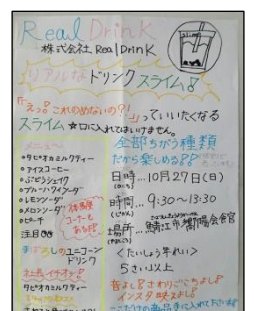 Real Drink
株式会社 Real Drink
リアルなドリンクスライム
「えっ!これのめないの?!」っていいたくなる
スライム ☆口に入れてはいけません。
メニュー
・タピオカミルクティー
・アイスコーヒー
・レモンソーダ
・メロンソーダ
・ピーチ
注目
まぼろしのユニコーン
ドリンク
社長イチオシ
タピオカミルクティー
全部ちがう種類
だから楽しめる
日時…10月27日(日)
時間…9:30~13:00
場所…鯖江市嚮陽会館
<たいしょう年れい>
5さい以上
音よしさわりごこちよし
インスタ映えよし